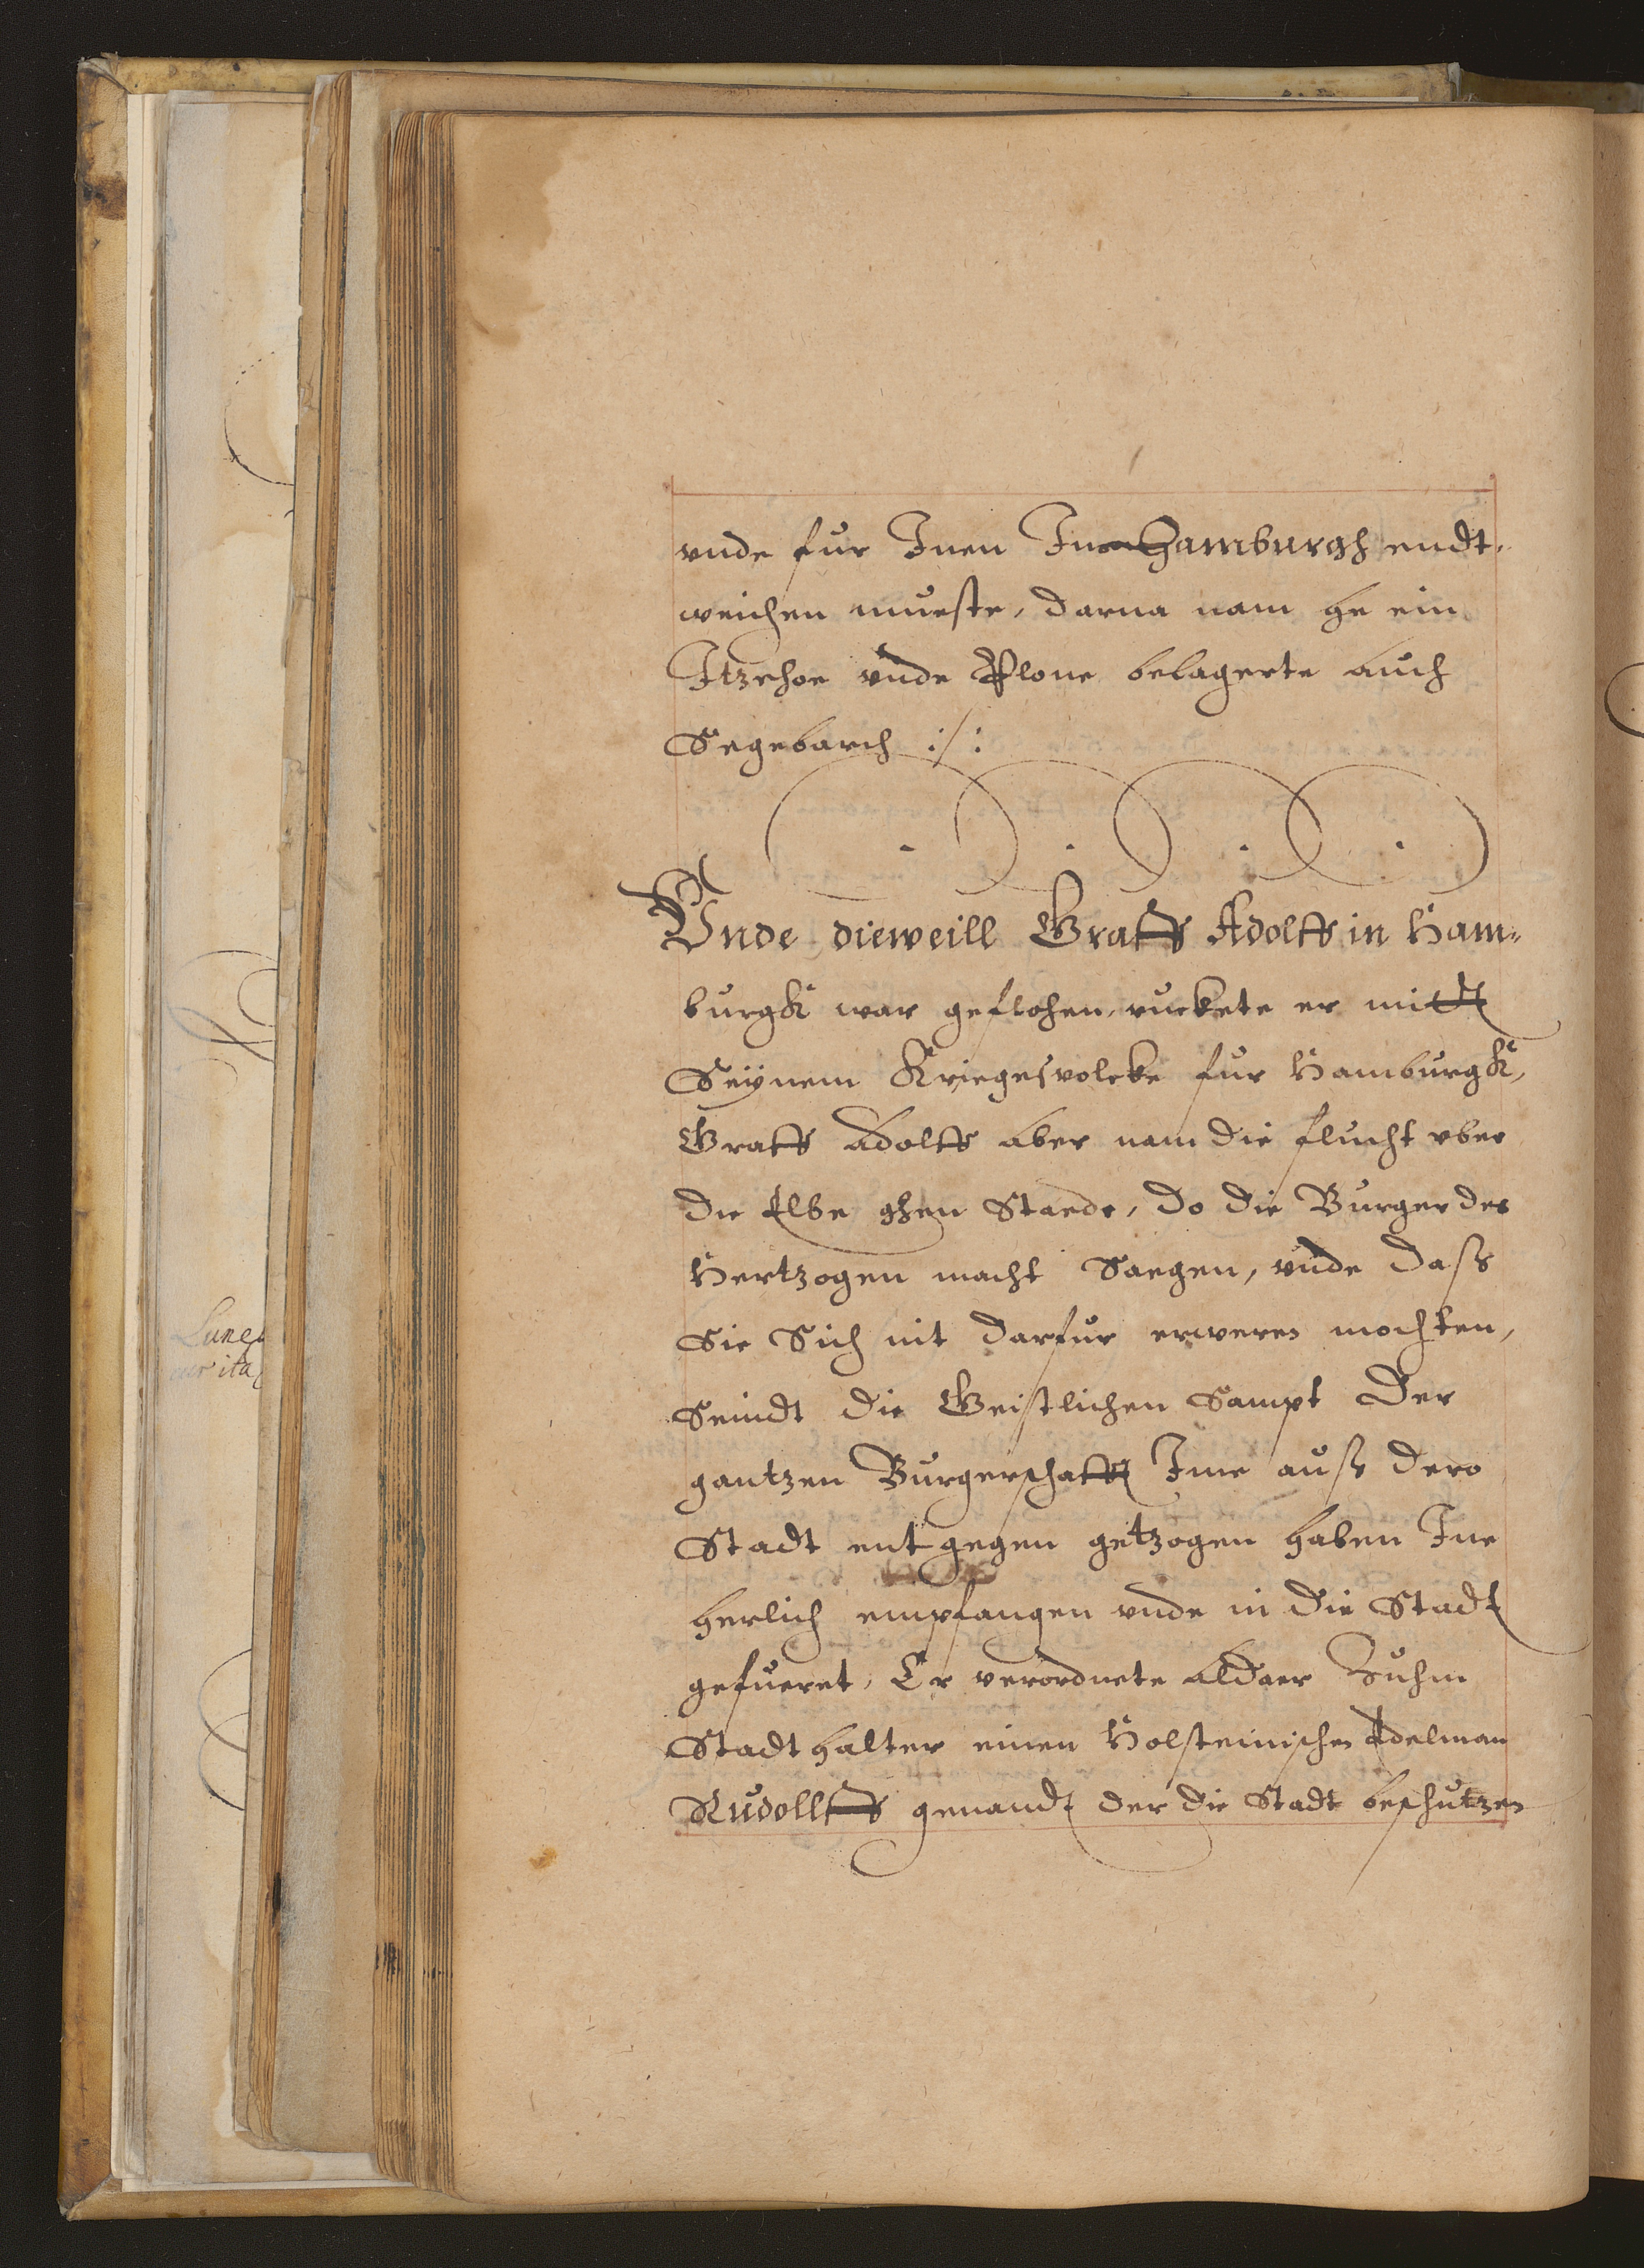 vnde fur Inen In Hamburgh endt,
weichen mueste, darna nam he ein
Itzehoe vnde Plone belagerte auch
Segebarch :/:
Vnde dieweill Graff Adolff in Ham=
burgk war geflohen, ruckete er mitt
Seÿnem Kriegesvolcke fur Hamburgk,
Graff Adolff aber nam die flucht vber
die Elbe ghen Staede, do die Burger des
Hertzogen macht Saegen, vnde dass
Sie Sich nit darfur erweren mochten,
Seindt die Geistlichen Sampt der
gantzen Burgerschafft Ime auss dero
Stadt entgegen getzogen haben Ine
herlich empfangen vnde in die Stadt
gefueret, Er verordnete aldaer Zuhm
Stadthalter einen Holsteinischen Edelman
Rudollff genandt der die Stadt beschutzen
Lune
ita